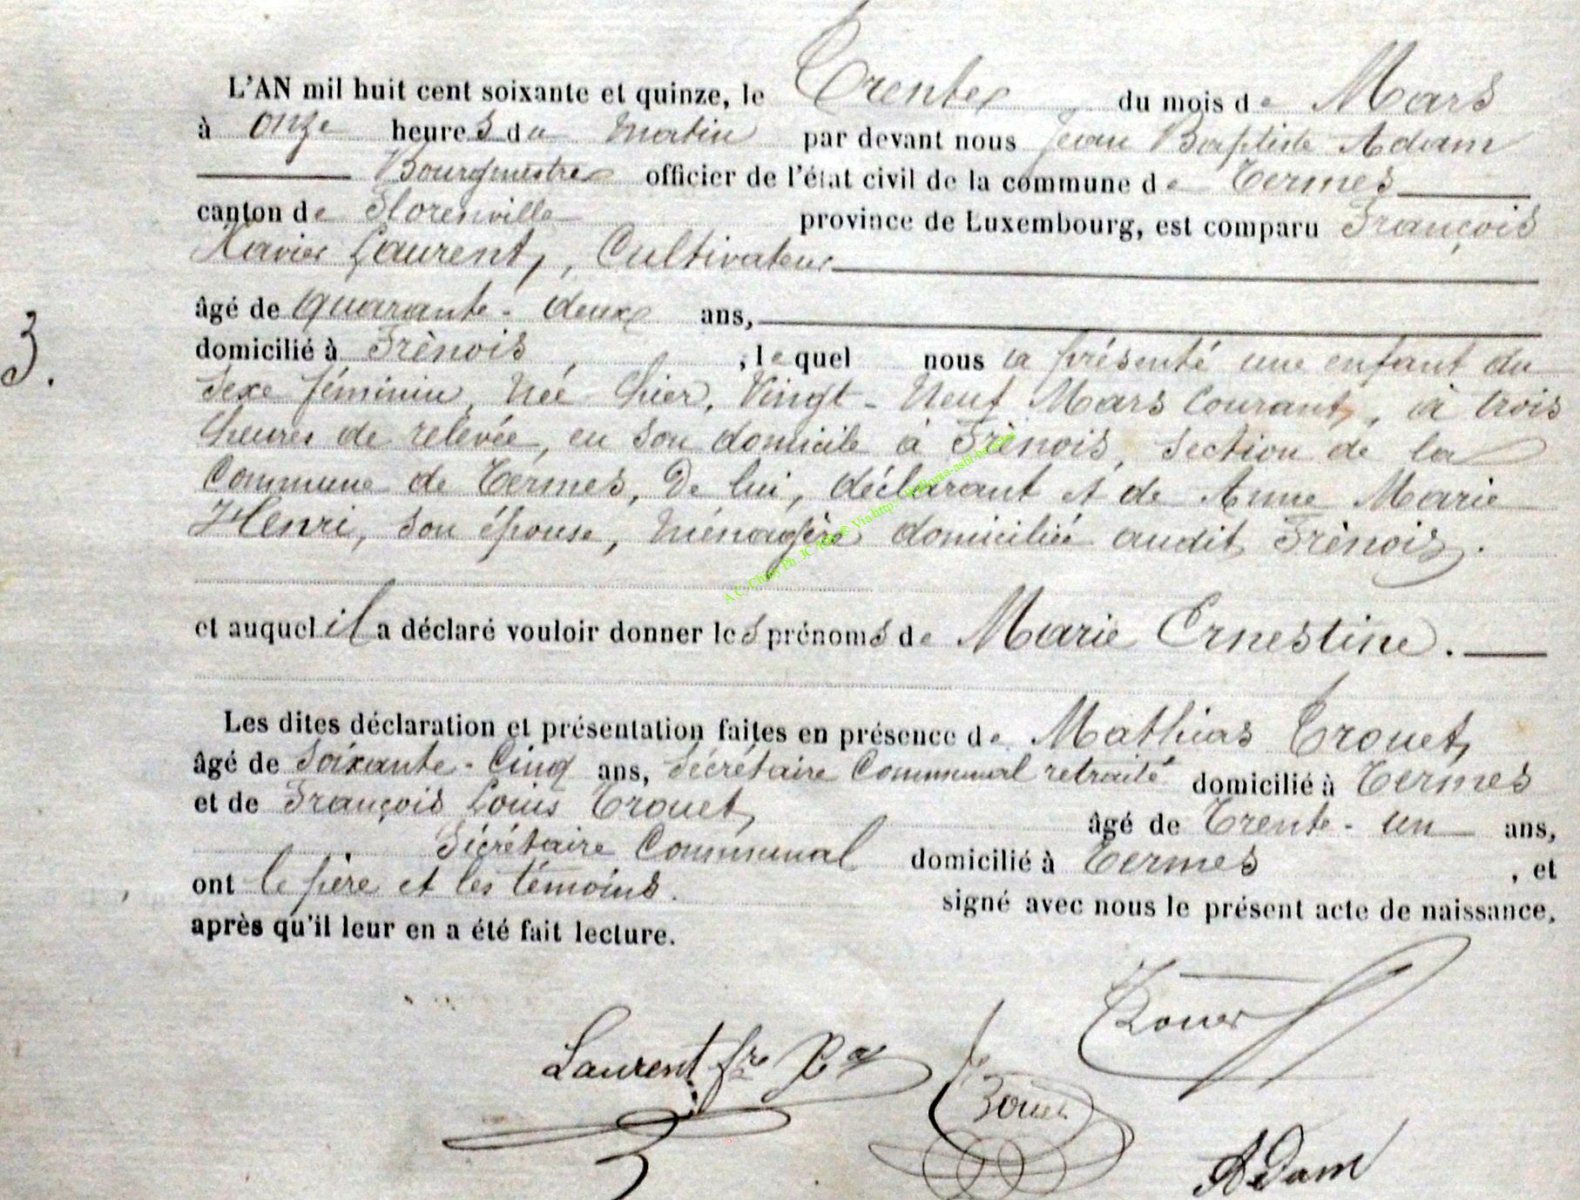 L'AN mil huit cent soixante et quinze, le Trente du mois de Mars
à onze heures du matin par devant nous Jean Baptiste Adam
Bourgmestre officier de l'état civil de la commune de Termes
canton de Florenville province de Luxembourg, est comparu François
Xavier Laurent, Cultivateur
âgé de quarante-deux ans,
3. domicilié à Frènois, lequel nous a présenté une enfant du
sexe féminin, Née hier, Vingt-Neuf Mars Courant, à trois
heures de relevée, en son domicile à Frènois, section de la
Commune de Termes, De lui, déclarant et de Anne Marie
Henri, son épouse, Ménagère domiciliée audit Frènois.
et auquel il a déclaré vouloir donner les prénoms de Marie Ernestine.
Les dites déclaration et présentation faites en présence de Mathias Trouet,
âgé de Soixante-Cinq ans, Sécrétaire Communal retraité domicilié à Termes
et de François Louis Trouet, âgé de Trente-un ans,
Sécrétaire Communal domicilié à Termes, et
ont le père et les témoins. signé avec nous le présent acte de naissance,
après qu'il leur en a été fait lecture.
Laurent
Adam